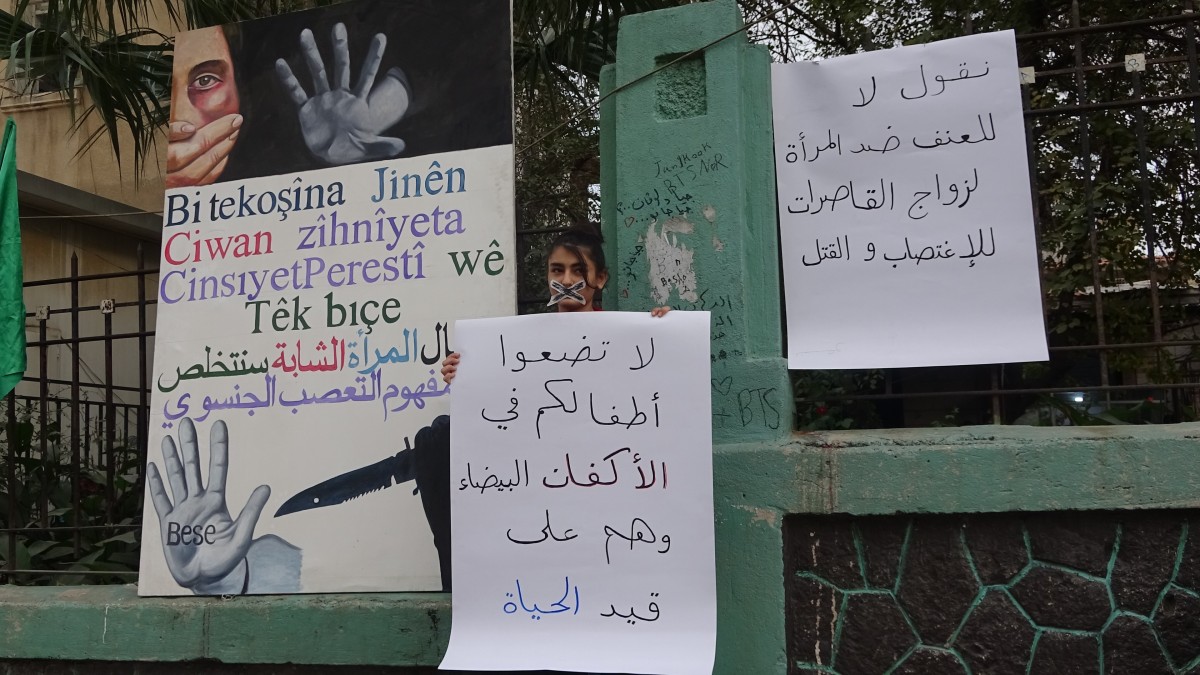 Bi tekoşîna Jinên
Ciwan zîhnîyeta
CinsıyetPerestî wê
Têk bıçe
المرأة الشابة سنتخلص
التعصب الجنسوي
Bese
لا تضعوا
أطفالكم في
الأكفان البيضاء
وهم على
قيد الحياة
نقول لا
للعنف ضد المرأة
لزواج القاصرات
للإغتصاب و القتل
JunKook
BTS
BTS